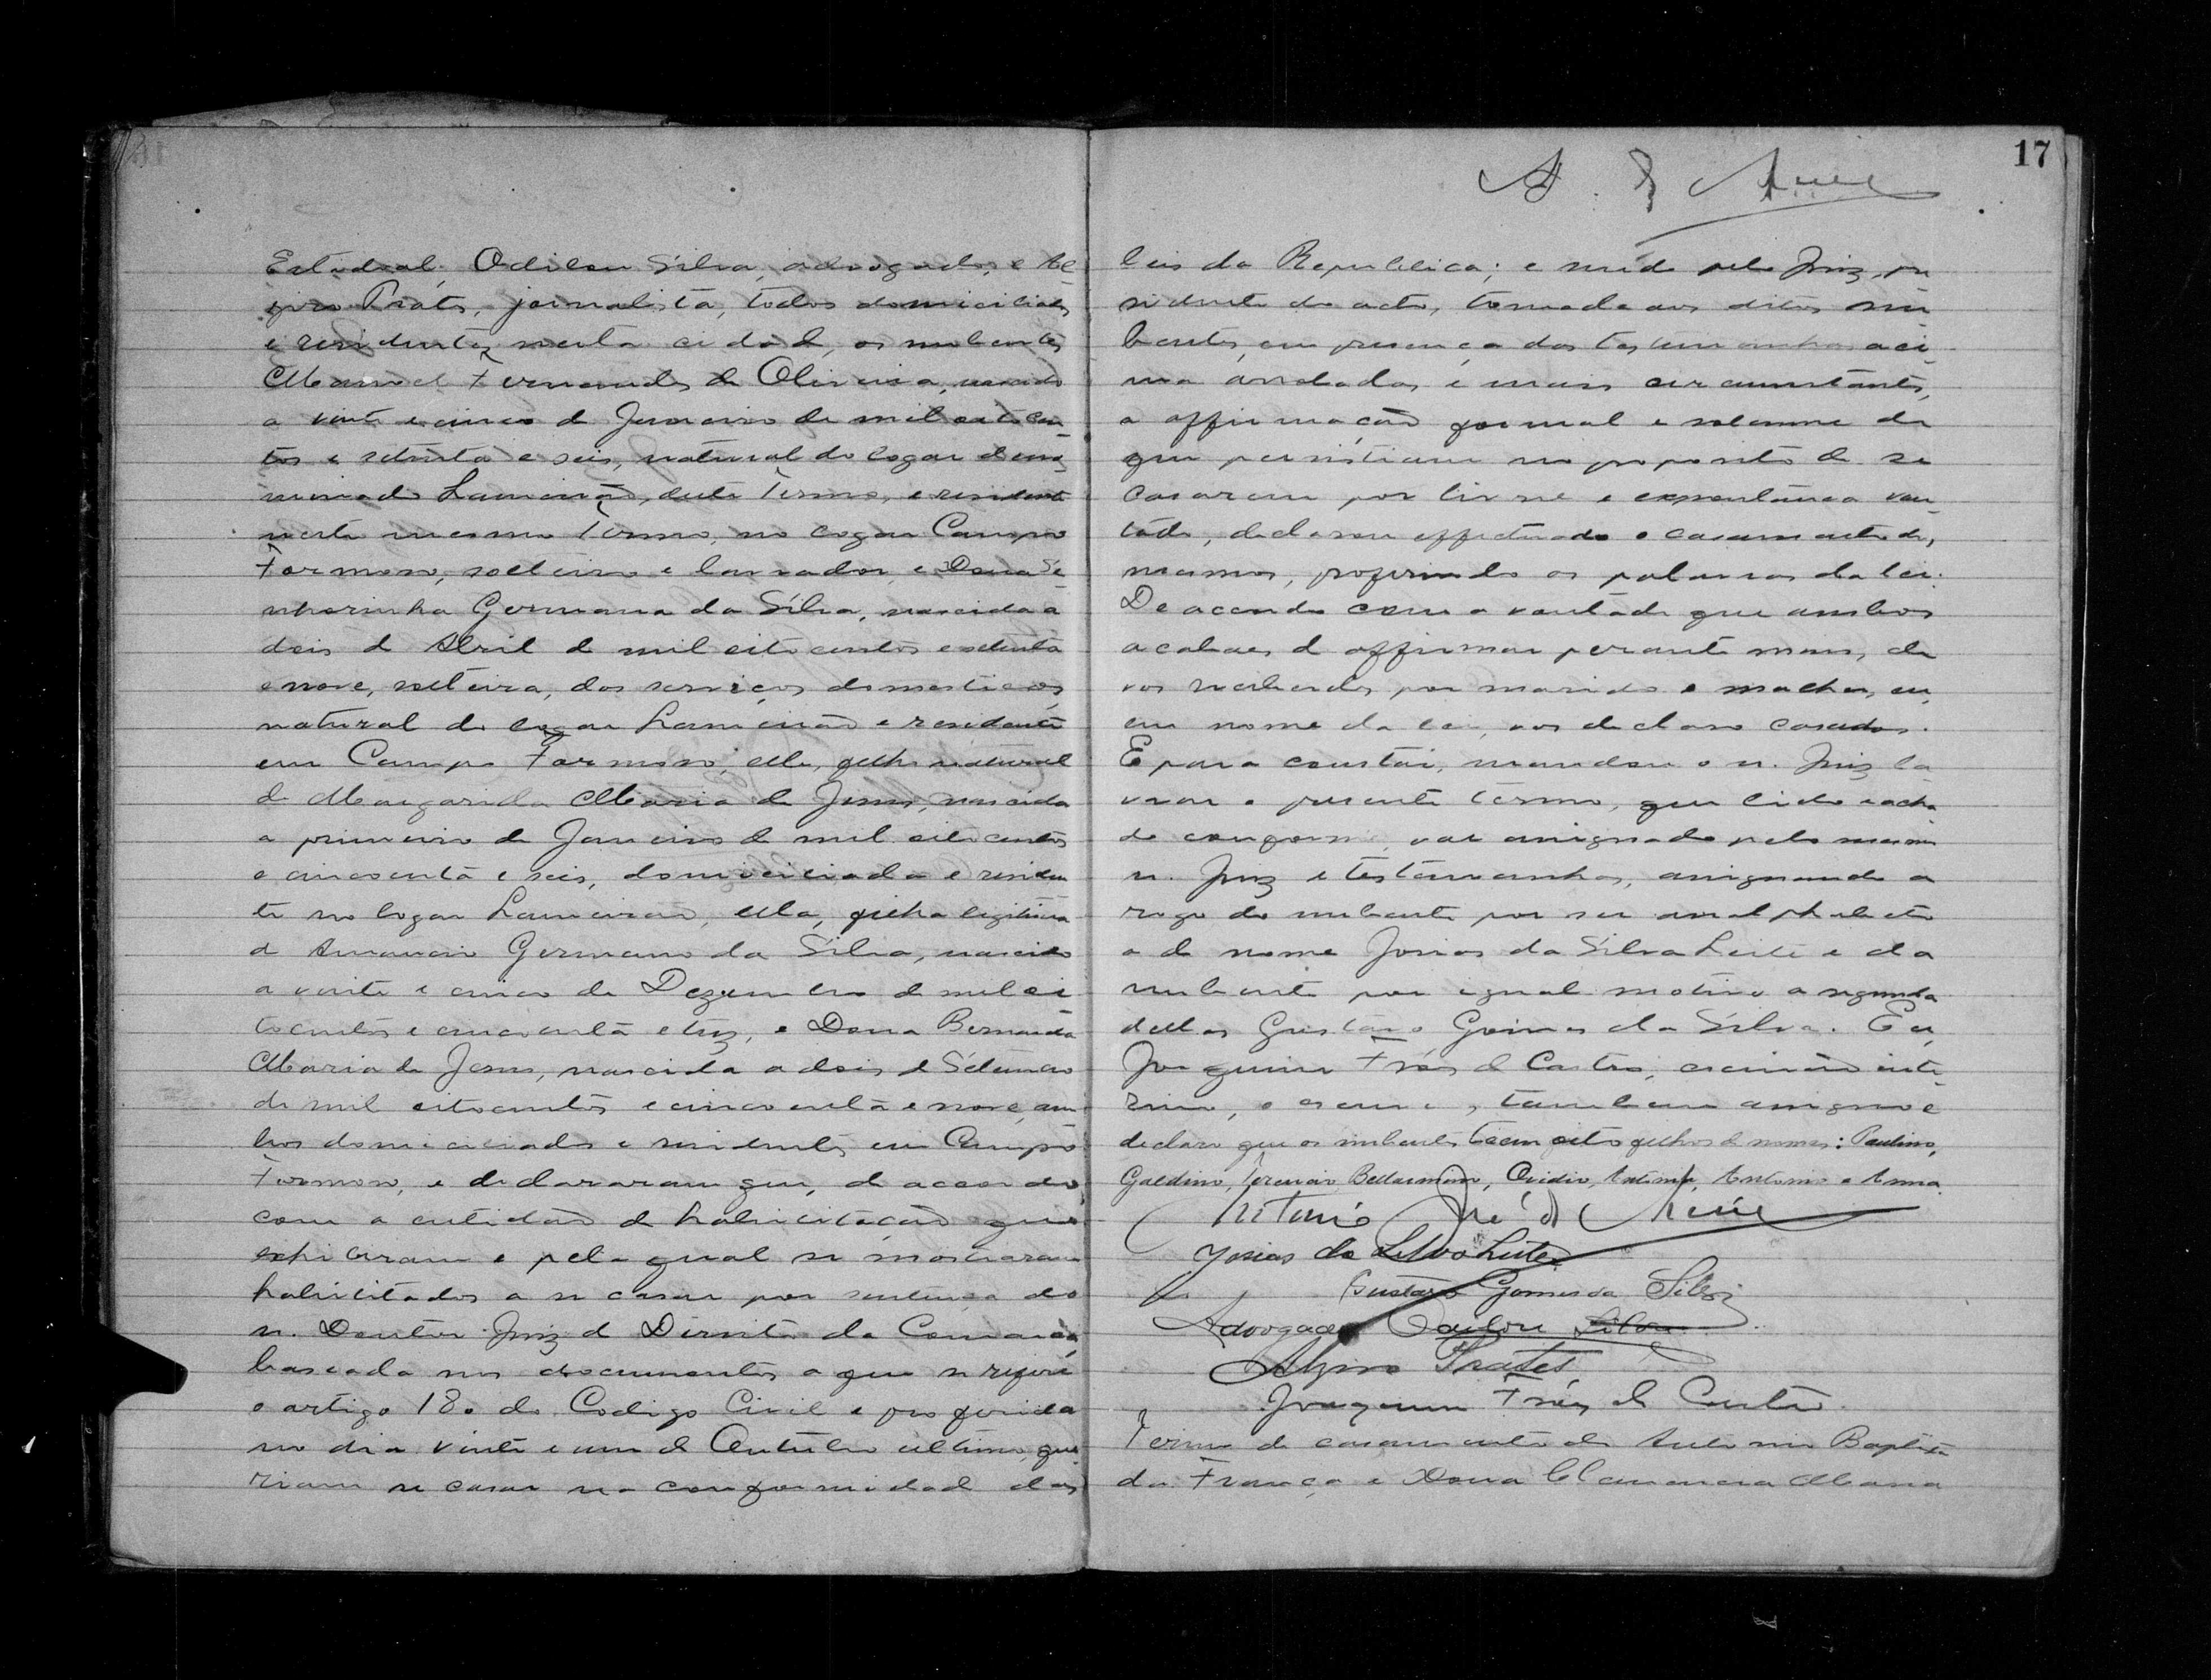 Estadual. Odilon Silva, advogado, e Al-
giro Prates, jornalista, todos domiciliados
e residentes nesta cidade, os nubentes
Manoel Fernandes de Oliveira, nascido
a vinte e cinco de Janeiro de mil oitocen-
tos e setenta e seis, natural do logar deno-
minado Lameirão, deste Termo, e residente
neste mesmo Termo, no logar Campo
Formoso, solteiro e lavrador, e Dona Se-
nhorinha Germana da Silva, nascida a
dois de Abril de mil oitocentos e setenta
e nove, solteira, dos serviços domesticos,
natural do logar Lameirão e residente
em Campo Formoso; elle, filho natural
de Margarida Maria de Jesus, nascida
a primeiro de Janeiro de mil oitocentos
e cincoenta e seis, domiciliada e residen-
te no logar Lameirão, ella, filha legitima
de Amancio Germano da Silva, nascido
a vinte e cinco de Dezembro de mil oi-
tocentos e cincoenta e trez, e Dona Bernarda
Maria de Jesus, nascida a dois de Setembro
de mil oitocentos e cincoenta e nove, am-
bos domiciliados e residentes em Campo
Formoso, e declararam que, de accordo
com a certidão de habilitação que
exhibiram e pela qual se mostraram
habilitados a se casar por sentença do
m. Doutor Juiz de Direito da Comarca,
baseada nos documentos a que se refere
o artigo 180 do Codigo Civil e proferida
no dia vinte e um de Outubro ultimo, que-
riam se casar na conformidade das
17
leis da Republica; e sendo pelo Juiz, pre-
sidente do acto, tomada aos ditos nu-
bentes, em presença das testemunhas aci-
ma arroladas e mais circumstantes,
a affirmação formal e solemne de
que persistiam no proposito de se
casarem por livre e expontanea von-
tade, declarou effectuado o casamento dos
mesmos, proferindo as palavras da lei:
De accordo com a vontade que ambos
acabaes de affirmar perante mim, de
vos receberdes por marido e mulher, eu,
em nome da lei, vos declaro casados.
E para constar, mandou o m. Juiz la-
vrar o presente termo, que lido e acha-
do conforme, vae assignado pelo mesmo
m. Juiz e testemunhas, assignando a
rogo do nubente por ser analphabeto
o de nome Josias da Silva Leite e da
nubente por egual motivo a segunda
dellas Gustavo Gomes da Silva. Eu,
Joaquim Fróes de Castro, escrivão inte-
rino, o escrevi, tambem assigno e
declaro que os nubentes teem oito filhos de nomes: Paulino,
Galdino, Terencio, Bellarmino, Ovidio, Antonia, Antonio e Anna.
Antonio José de
Josias da Silva Leite
Gustavo Gomes da Silva
Advogado Odilon Silva
Algiro Prates
Joaquim Fróes de Castro.
Termo de casamento de Antonio Baptista
da França e Dona Clemencia Maria